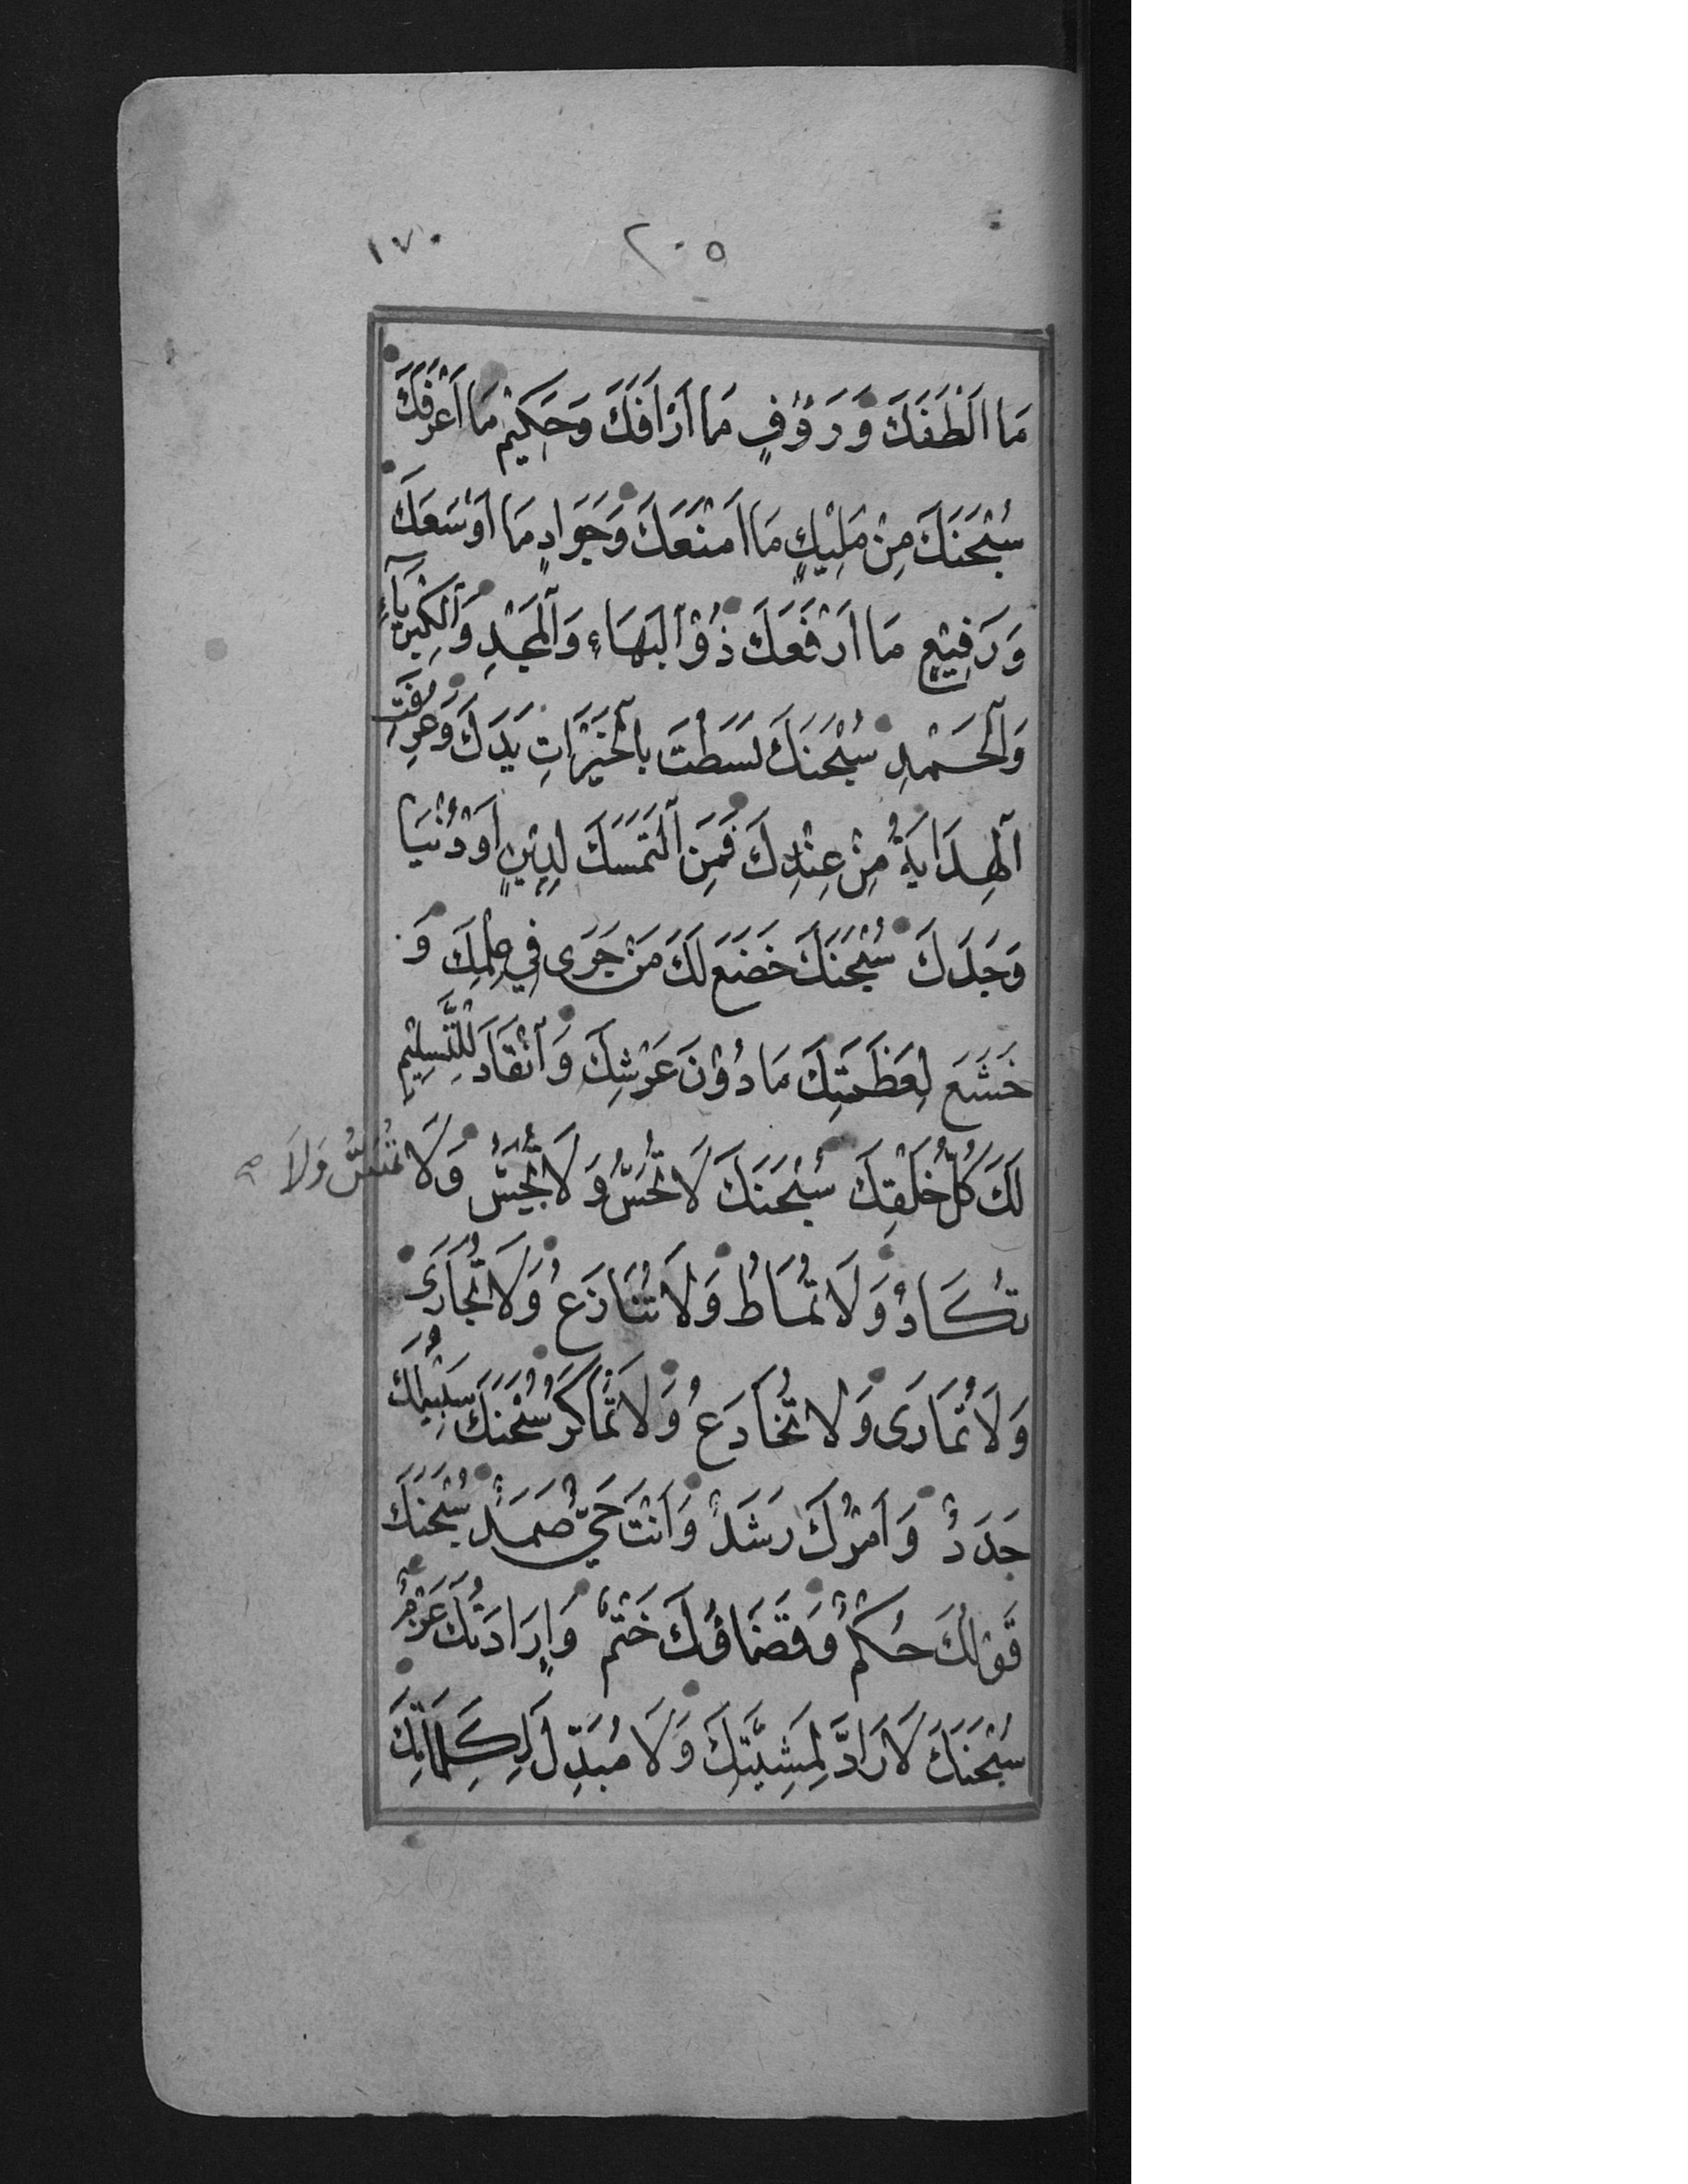 ٢٠٥ ١٧٠
مَا اَلْطَفَكَ وَرَؤُفٍ مَا اَرْاَفَكَ وَحَكِيْمٍ مَا اَعْرَفَكَ
سُبْحٰنَكَ مِنْ مَلِيْكٍ مَا اَمْنَعَكَ وَجَوَادٍ مَا اَوْسَعَكَ
وَرَفِيْعٍ مَا اَرْفَعَكَ ذُوْ الْبَهَاءِ وَالْمَجْدِ وَالْكِبْرِيَآءِ
وَالْحَمْدِ سُبْحٰنَكَ بَسَطْتَ بِالْخَيْرَاتِ يَدَكَ وَعُرِفَتِ
الْهِدَايَةُ مِنْ عِنْدِكَ فَمَنِ الْتَمَسَكَ لِدِيْنٍ اَوْ دُنْيَا
وَجَدَكَ سُبْحٰنَكَ خَضَعَ لَكَ مَنْ جَرٰى فِي عِلْمِكَ وَ
خَشَعَ لِعَظَمَتِكَ مَا دُوْنَ عَرْشِكَ وَانْقَادَ لِلتَّسْلِيْمِ
لَكَ كُلُّ خَلْقِكَ سُبْحٰنَكَ لَا تُحَسُّ وَلَا تُجَسُّ وَلَا تُمَسُّ وَلَا
تُكَادُ وَلَا تُمَاطُ وَلَا تُنَازَعُ وَلَا تُجَارٰى
وَلَا تُمَارٰى وَلَا تُخَادَعُ وَلَا تُمَاكَرُ سُبْحٰنَكَ سَبِيْلُكَ
جَدَدٌ وَاَمْرُكَ رَشَدٌ وَاَنْتَ حَيٌّ صَمَدٌ سُبْحٰنَكَ
قَوْلُكَ حُكْمٌ وَقَضَاؤُكَ حَتْمٌ وَاِرَادَتُكَ عَزْمٌ
سُبْحٰنَكَ لَا رَادَّ لِمَشِيَّتِكَ وَلَا مُبَدِّلَ لِكَلِمَاتِكَ